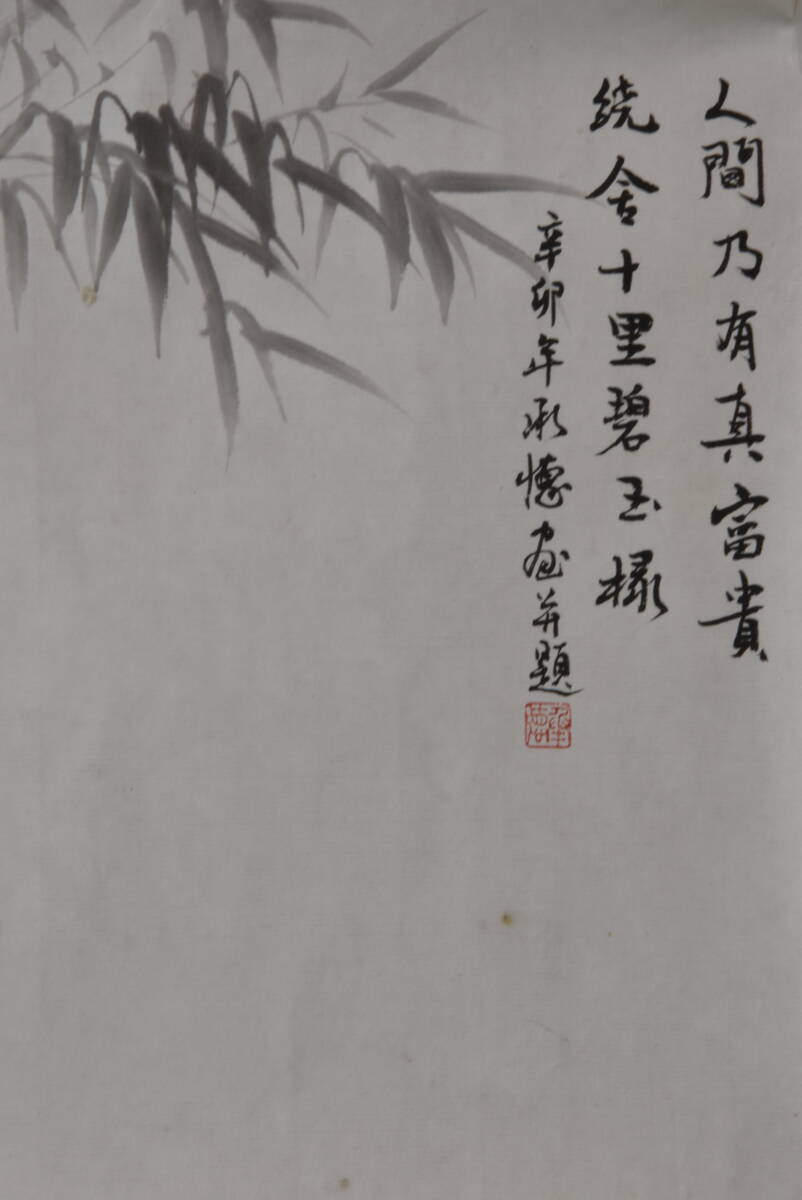 人間乃有真富貴
绕舍十里碧玉椽
辛卯年承懐画并題